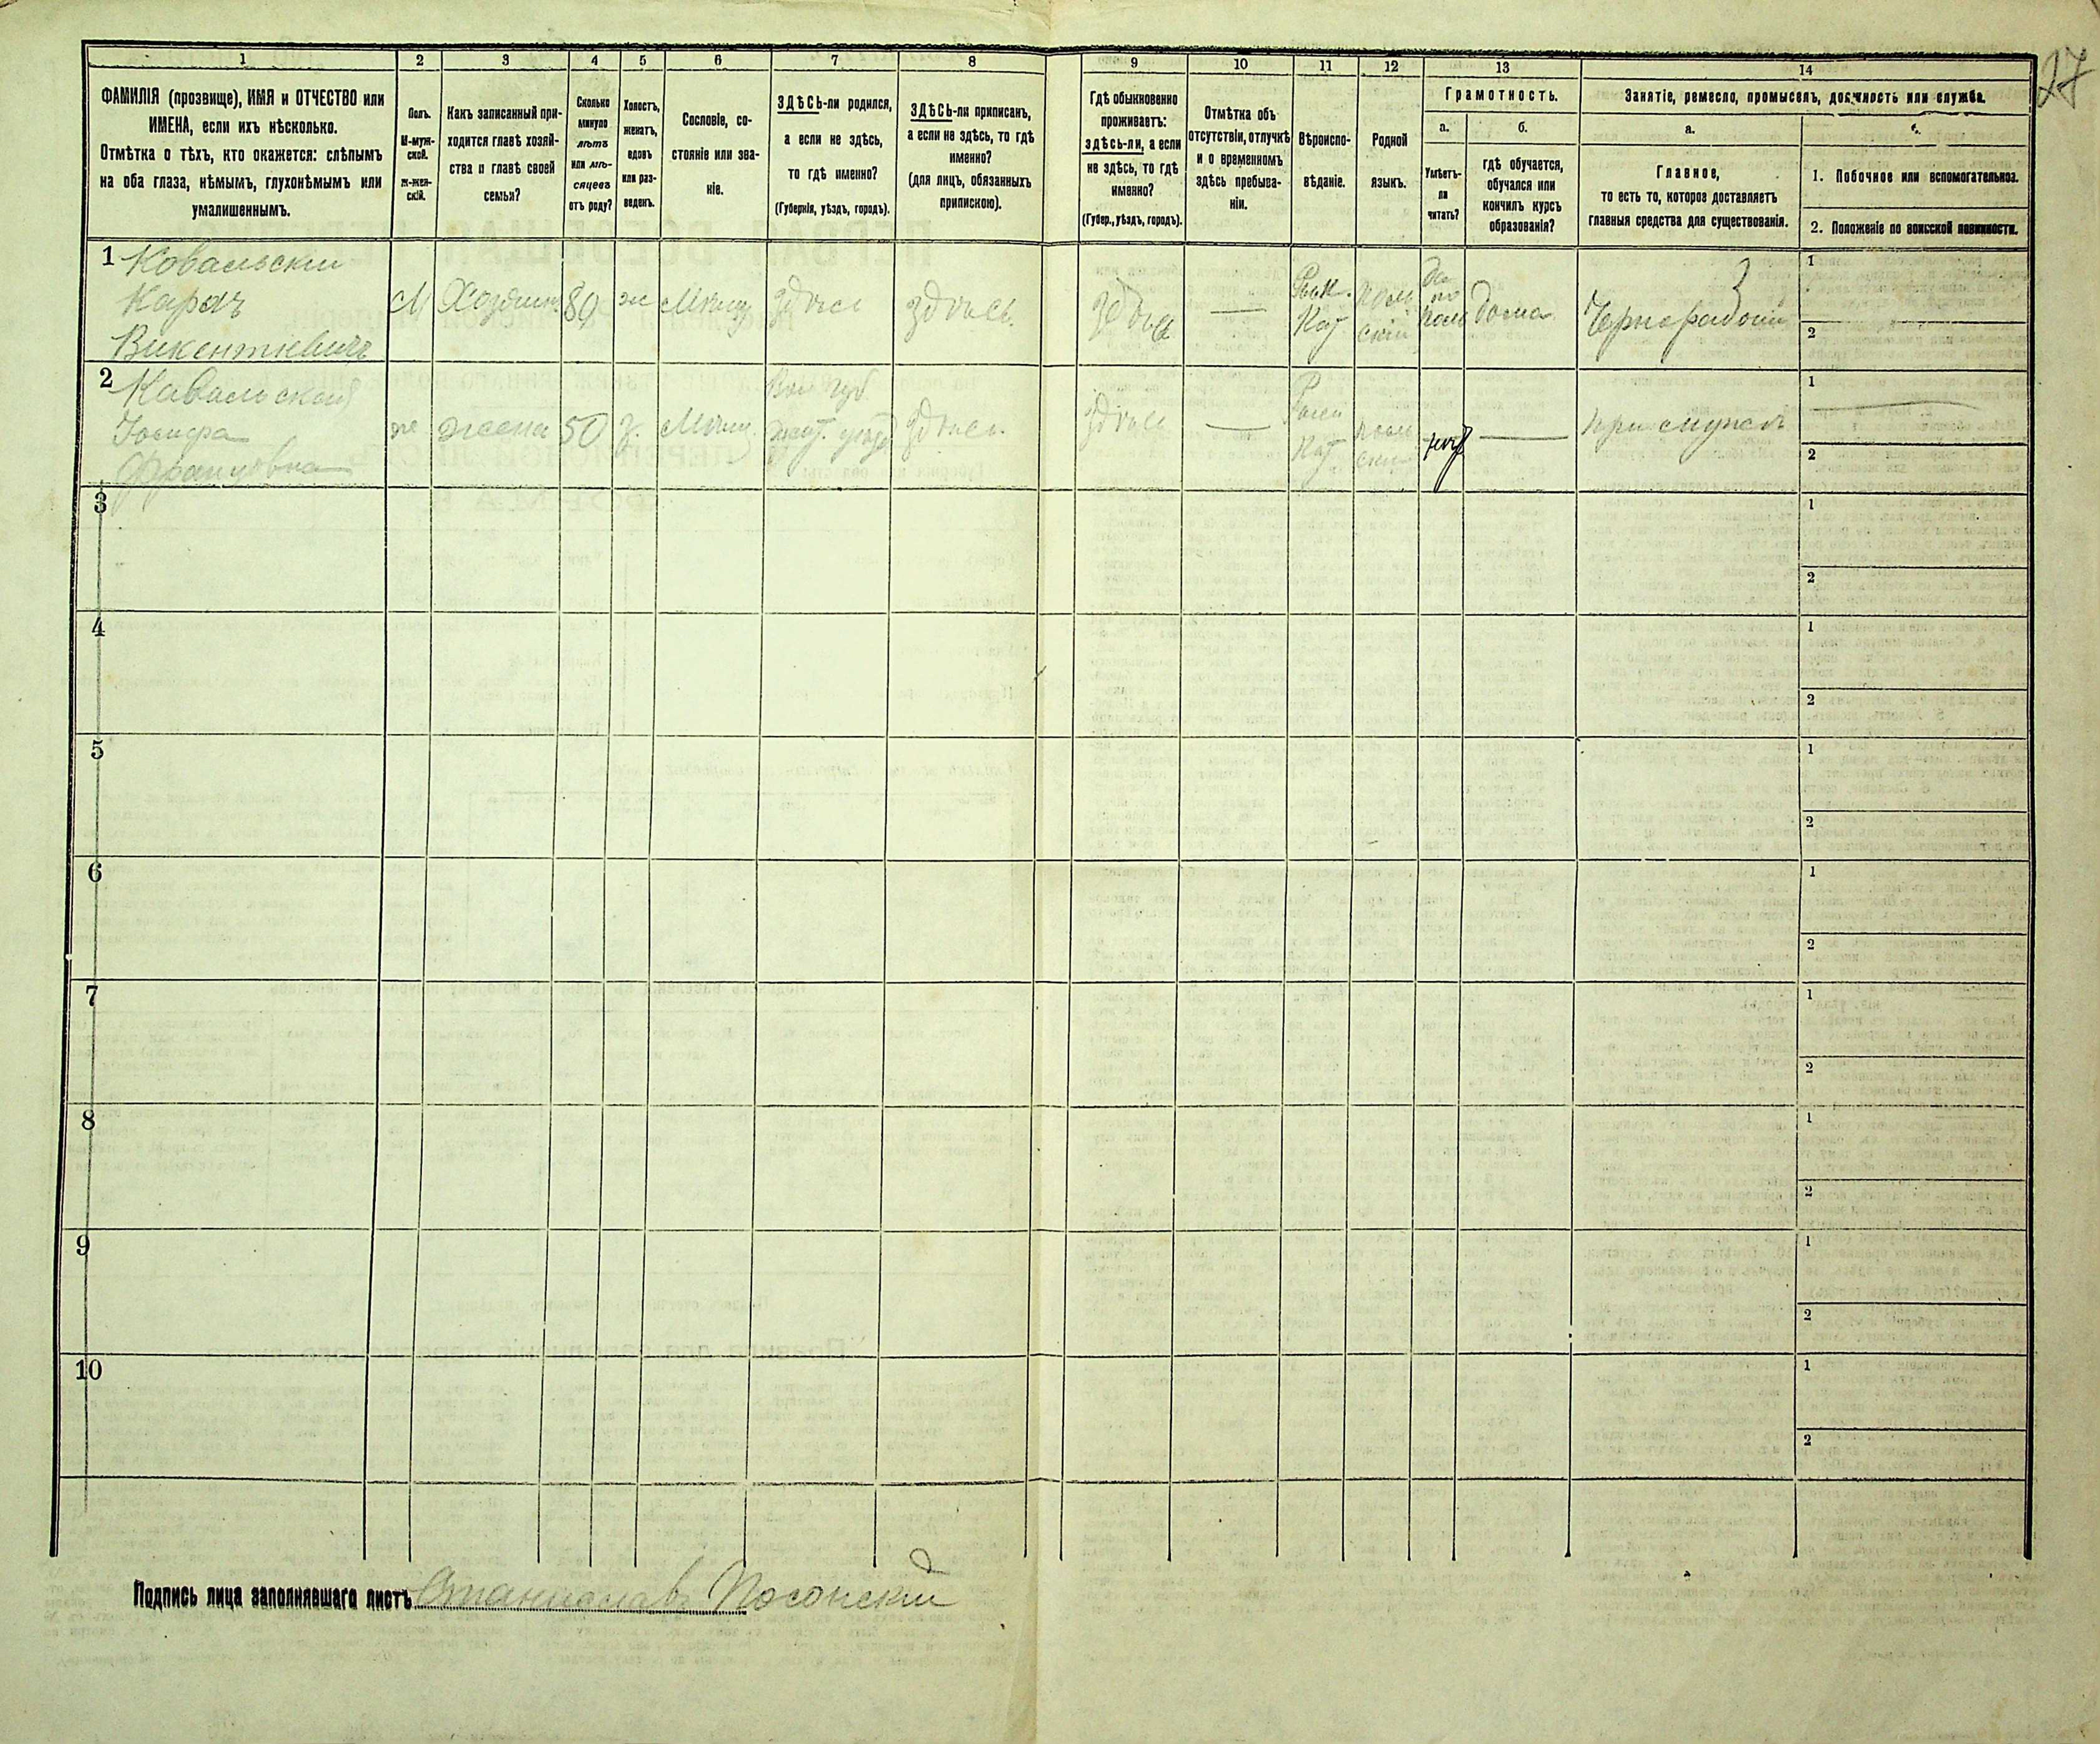 27
1 2 3 4 5 6 7 8 9 10 11 12 13 14
ФАМИЛІЯ (прозвище), ИМЯ и ОТЧЕСТВО или
ИМЕНА, если ихъ нѣсколько.
Отмѣтка о тѣхъ, кто окажется: слѣпымъ
на оба глаза, нѣмымъ, глухонѣмымъ или
умалишеннымъ.
Полъ.
М-муж-
ской.
Ж-жен-
скій.
Какъ записанный при-
ходится главѣ хозяй-
ства и главѣ своей
семьи?
Сколько
минуло
лѣтъ
или мѣ-
сяцевъ
отъ роду?
Холостъ,
женатъ,
вдовъ
или раз-
веденъ.
Сословіе, со-
стояніе или зва-
ніе.
ЗДѢСЬ-ли родился,
а если не здѣсь,
то гдѣ именно?
(Губернія, уѣздъ, городъ).
ЗДѢСЬ-ли приписанъ,
а если не здѣсь, то гдѣ
именно?
(для лицъ, обязанныхъ
припискою).
Гдѣ обыкновенно
проживаетъ:
здѣсь-ли, а если
не здѣсь, то гдѣ
именно?
(Губер., уѣздъ, городъ).
Отмѣтка объ
отсутствіи, отлучкѣ
и о временномъ
здѣсь пребыва-
ніи.
Вѣроиспо-
вѣданіе.
Родной
языкъ.
Грамотность.
а.
Умѣетъ-
ли
читать?
б.
гдѣ обучается,
обучался или
кончилъ курсъ
образованія?
Занятіе, ремесло, промыселъ, должность или служба.
а.
Главное,
то есть то, которое доставляетъ
главныя средства для существованія.
б.
1. Побочное или вспомогательное.
2. Положеніе по воинской повинности.
1 Ковальскій
Карлъ
Викентіевичъ
М Хозяинъ 80 ж Мѣщ. здѣсь здѣсь здѣсь —
Рим.
Кат
поль
скій
да
по
поль
дома
Чернорабочій
1
2
2 Кавальская
Іозифа
Францовна
же жена 50 з. Мѣщ.
Вол губ
Жит. уѣзд
здѣсь здѣсь —
Рим
Кат
поль
скій
нѣт —
при мужѣ
1
2
3 1
2
4 1
2
5 1
2
6 1
2
7 1
2
8 1
2
9 1
2
10 1
2
Подпись лица заполнявшаго листъ Станиславъ